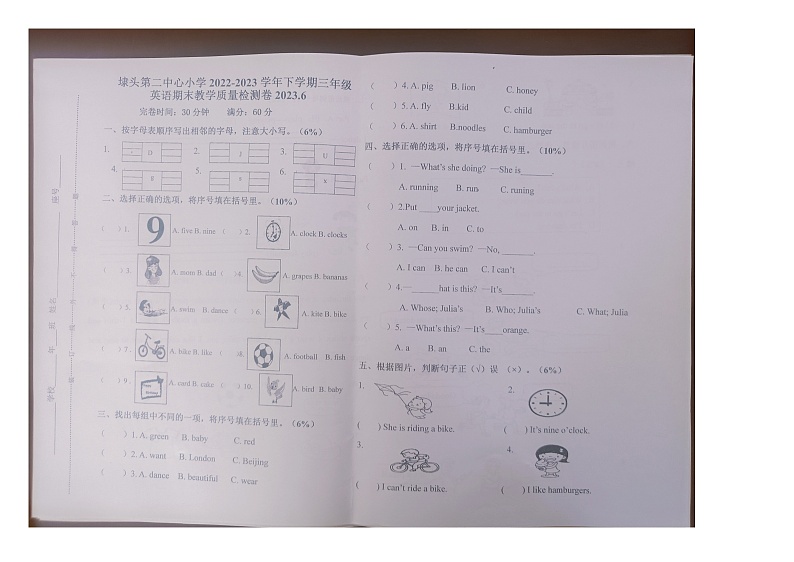 埭头第二中心小学 2022-2023 学年下学期三年级
英语期末教学质量检测卷 2023.6
完卷时间：30 分钟 满分：60 分
一、按字母表顺序写出相邻的字母，注意大小写。（6%）
1. O 2. J 3. U
4. g 5. s 6. x
二、选择正确的选项，将序号填在括号里。（10%）
( )1. 9 A. five B. nine ( )2. A. clock B. clocks
( )3. A. mom B. dad ( )4. A. grapes B. bananas
( )5. A. swim B. dance ( )6. A. kite B. bike
( )7. A. bike B. like ( )8. A. football B. fish
( )9. A. card B. cake ( )10. A. bird B. baby
三、找出每组中不同的一项，将序号填在括号里。（6%）
( )1. A. green B. baby C. red
( )2. A. want B. London C. Beijing
( )3. A. dance B. beautiful C. wear
( )4. A. pig B. lion C. honey
( )5. A. fly B.kid C. child
( )6. A. shirt B.noodles C. hamburger
四、选择正确的选项，将序号填在括号里。（10%）
( )1. —What's she doing? —She is_______.
A. running B. run C. runing
( )2.Put ____your jacket.
A. on B. in C. to
( )3. —Can you swim? —No, _______.
A. I can B. he can C. I can't
( )4.—______hat is this? —It's_______.
A. Whose; Julia's B. Who; Julia's C. What; Julia
( )5. —What's this? —It's ____orange.
A. a B. an C. the
五、根据图片，判断句子正（√）误（×）。（6%）
1. 2.
( ) She is riding a bike. ( ) It's nine o'clock.
3. 4.
( ) I can't ride a bike. ( ) I like hamburgers.
学校 年 班 姓名 座号